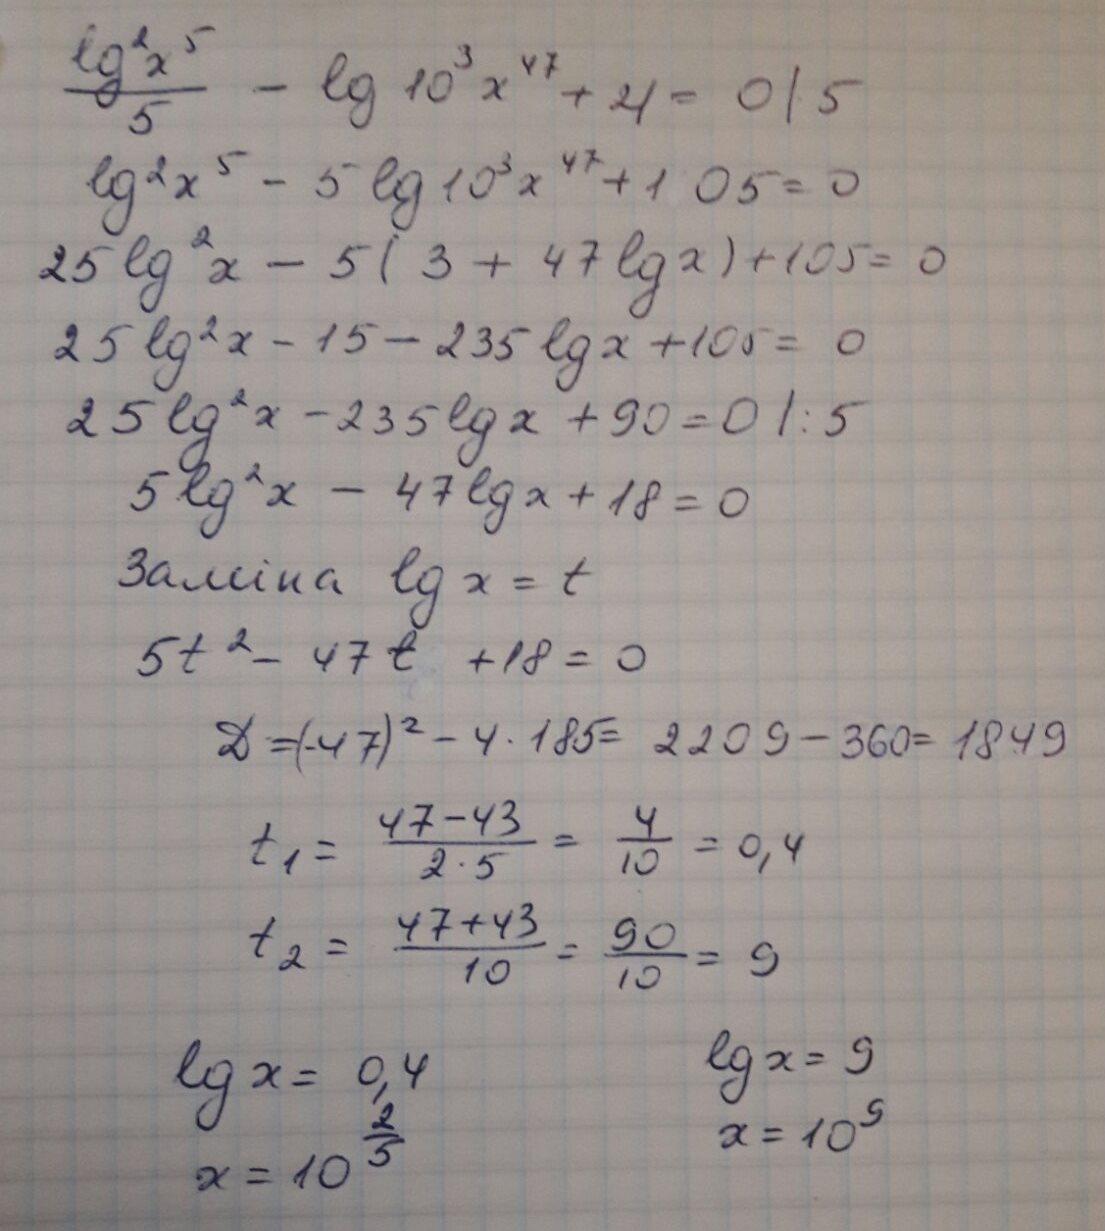 lg²x⁵/5 - lg 10³x⁴⁷ + 21 = 0 |·5
lg²x⁵ - 5 lg 10³x⁴⁷ + 105 = 0
25 lg²x - 5(3 + 47 lg x) + 105 = 0
25 lg²x - 15 - 235 lg x + 105 = 0
25 lg²x - 235 lg x + 90 = 0 |:5
5 lg²x - 47 lg x + 18 = 0
Заміна lg x = t
5t² - 47t + 18 = 0
D = (-47)² - 4·18·5 = 2209 - 360 = 1849
t₁ = (47-43)/(2·5) = 4/10 = 0,4
t₂ = (47+43)/10 = 90/10 = 9
lg x = 0,4 lg x = 9
x = 10^(2/5) x = 10⁹